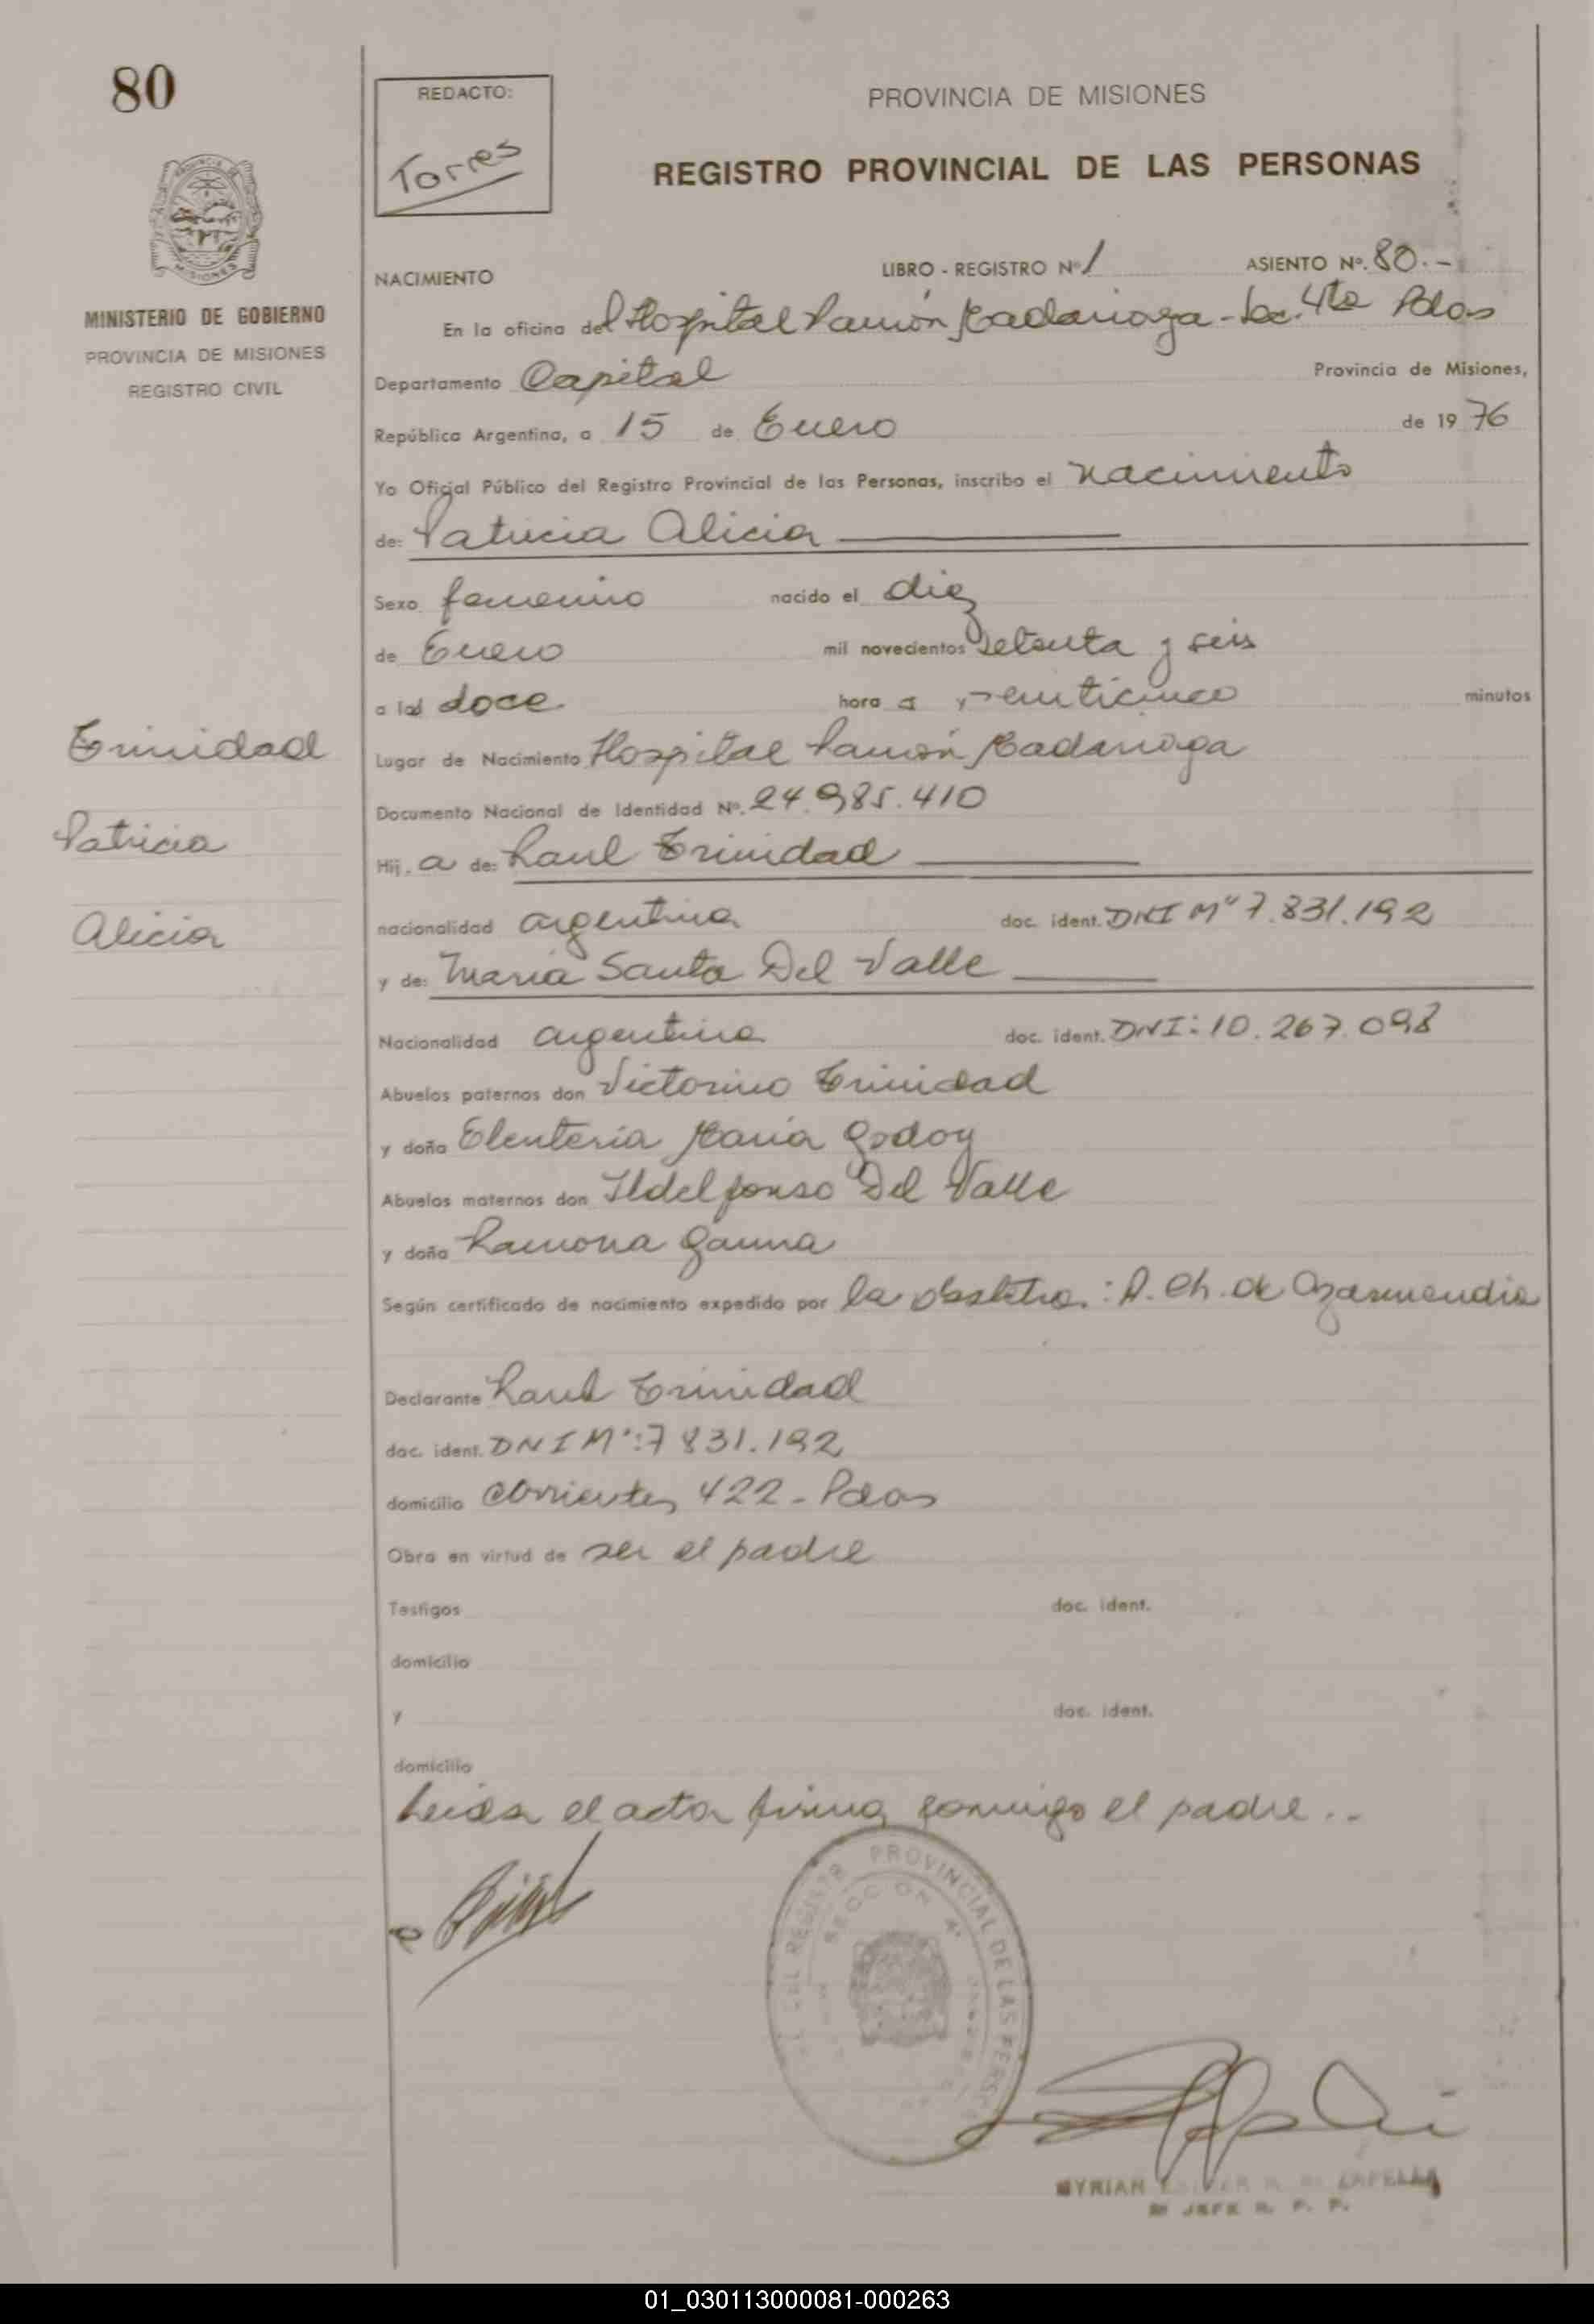 80
REDACTO:
Torres
PROVINCIA DE MISIONES
REGISTRO PROVINCIAL DE LAS PERSONAS
MINISTERIO DE GOBIERNO
PROVINCIA DE MISIONES
REGISTRO CIVIL
NACIMIENTO
LIBRO - REGISTRO Nº 1
ASIENTO Nº. 80.-
En la oficina del Hospital Ramón Madariaga - Sec. 4ta Pdas
Departamento Capital Provincia de Misiones,
República Argentina, a 15 de Enero de 1976
Yo Oficial Público del Registro Provincial de las Personas, inscribo el nacimiento
de: Patricia Alicia
Sexo femenino nacido el diez
de Enero mil novecientos setenta y seis
a las doce hora s y veinticinco minutos
Trinidad
Patricia
Alicia
Lugar de Nacimiento Hospital Ramón Madariaga
Documento Nacional de Identidad Nº. 24.985.410
Hij. a de: Raul Trinidad
nacionalidad argentina doc. ident. DNI Mº 7.831.192
y de: Maria Santa Del Valle
Nacionalidad argentina doc. ident. DNI: 10.267.098
Abuelos paternos don Victorino Trinidad
y doña Eleuteria Maria Godoy
Abuelos maternos don Ildelfonso Del Valle
y doña Ramona Gauna
Según certificado de nacimiento expedido por la obstetra: A. Ch. de Ozarmendia
Declarante Raul Trinidad
doc. ident. DNI Mº: 7831.192
domicilio Corrientes 422 - Pdas
Obra en virtud de ser el padre
Testigos doc. ident.
domicilio
y doc. ident.
domicilio
Leida el acta firma conmigo el padre..
PROVINCIAL DE LAS
SECCION 4ª
MYRIAN ZAPELLA
JEFE R. P. P.
01_030113000081-000263